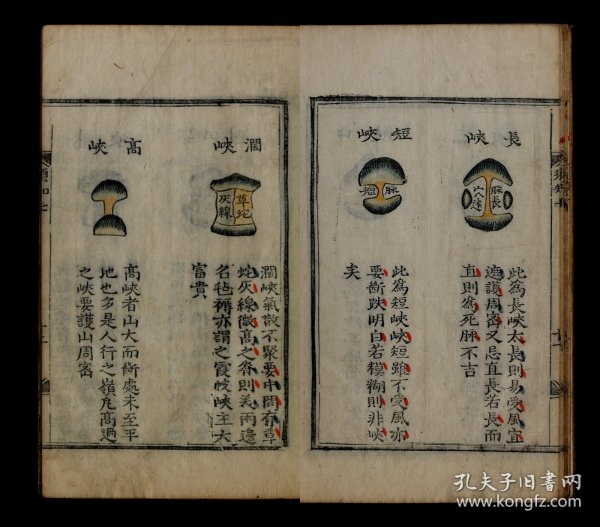 長峽
脉長
此為長峽太長則易受風宜
遮護周密又忌直長若長而
直則為死脉不吉
短峽
脉
短
此為短峽峽短雖不受風亦
要斷跌明白若模糊則非峽
矣
濶峽
草蛇
灰線
濶峽氣散不聚要中間有草
蛇灰線微高之脊則美兩邉
名毡褥亦謂之霞帔峽主大
富貴
高峽
高峽者山大而斷處未至平
地也多是人行之嶺凡高過
之峽要護山周密
孔夫子旧书网
www.kongfz.com